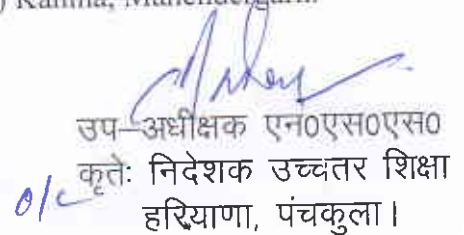 ) Kanina, Mahendergarh.
उप–अधीक्षक एन0एस0एस0
कृतेः निदेशक उच्चतर शिक्षा
o/c हरियाणा, पंचकुला।